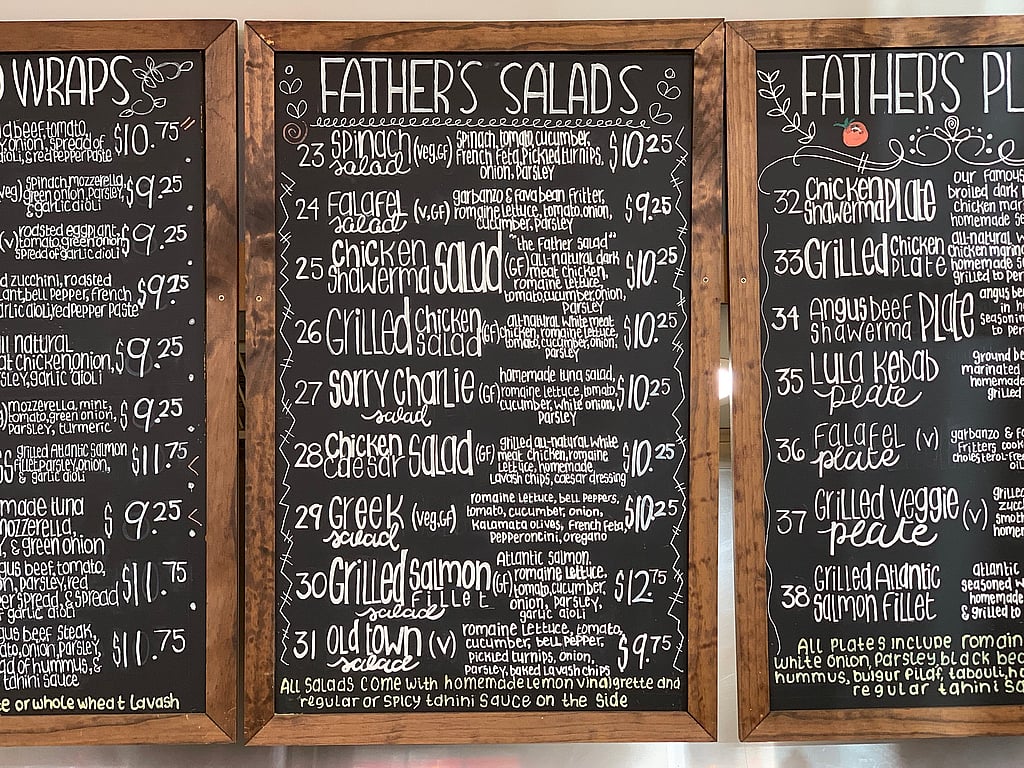 WRAPS
beef, tomato,
onion, spread of
aioli, & red pepper paste
$10.75
spinach, mozzerella,
green onion, parsley,
& garlic aioli
$9.25
(v) roasted eggplant,
tomato, green onion,
spread of garlic aioli
$9.25
zucchini, roasted
bell pepper, french
garlic aioli, red pepper paste
$9.25
natural
chicken, onion,
garlic aioli
$9.25
mozzerella, mint,
tomato, green onion,
parsley, turmeric
$9.25
grilled Atlantic salmon
fillet, parsley, onion,
& garlic aioli
$11.75
made tuna
mozzerella,
& green onion
$9.25
beef, tomato,
parsley, red
spread, & spread
of garlic aioli
$11.75
beef steak,
onion, parsley,
of hummus, &
tahini sauce
$11.75
or whole wheat lavash
FATHER'S SALADS
23 Spinach salad (veg,GF) spinach, tomato, cucumber,
French Feta, pickled turnips,
onion, parsley
$10.25
24 Falafel salad (V,GF) garbanzo & fava bean fritter,
romaine lettuce, tomato, onion,
cucumber, parsley
$9.25
25 chicken shawerma salad "the Father salad"
(GF) all-natural dark
meat chicken,
romaine lettuce,
tomato, cucumber, onion,
parsley
$10.25
26 Grilled chicken salad (GF) all-natural white meat
chicken, romaine lettuce,
tomato, cucumber, onion,
parsley
$10.25
27 sorry Charlie salad (GF) homemade tuna salad,
romaine lettuce, tomato,
cucumber, white onion,
parsley
$10.25
28 chicken caesar salad (GF) grilled all-natural white
meat chicken, romaine
lettuce, homemade
lavash chips, caesar dressing
$10.25
29 Greek salad (veg,GF) romaine lettuce, bell peppers,
tomato, cucumber, onion,
kalamata olives, French feta,
pepperoncini, oregano
$10.25
30 Grilled salmon fillet salad (GF) Atlantic salmon,
romaine lettuce,
tomato, cucumber,
onion, parsley,
garlic aioli
$12.75
31 old town salad (V) romaine lettuce, tomato,
cucumber, bell pepper,
pickled turnips, onion,
parsley, baked lavash chips
$9.75
All salads come with homemade lemon vinaigrette and
regular or spicy tahini sauce on the side
FATHER'S PL
32 chicken shawerma PLATE our famous
broiled dark
chicken
homemade
33 Grilled chicken PLATE all-natural
chicken
homemade
grilled to
34 Angus beef shawerma PLATE angus
in
seasoning
to
35 LULA KEBAB plate ground
marinated
homemade
grilled
36 Falafel plate (v) garbanzo &
fritters
cholesterol-free
37 Grilled veggie plate (v) grilled
38 Grilled Atlantic salmon fillet atlantic
seasoned
homemade
& grilled to
All plates include romain
white onion, parsley, black
hummus, bulgur pilaf, tabouli,
regular tahini